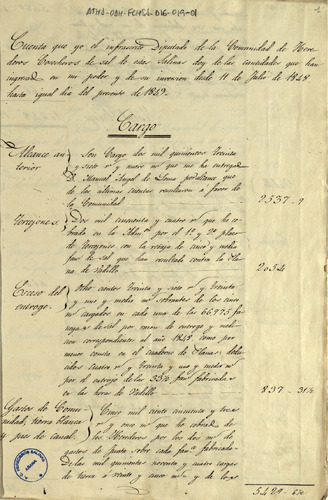 ATHA-DAH-FCHSA-016-019-01
Cuenta que yo el infrascrito Diputado de la Comunidad de Here-
deros Cosecheros de sal de estas Salinas doy de las cantidades que han
ingresado en mi poder y de su inversion desde 11 de Julio de 1848
hasta igual dia del presente de 1849.
Cargo
Alcance an-
terior
Son Cargo dos mil quinientos treinta
y siete r y nueve m que me ha entregado
D. Manuel Angel de por
de las últimas cuentas resultaron á favor de
la Comunidad
2537-9
Dos mil cincuenta y cuatro r que he co-
brado en la por el 1º y 2º plazo
de con la rebaja de cinco y media
de sal que han resultado contra la
de
2054
Exceso del
entrego
Ocho cientos treinta y siete r y treinta
y uno y medio m sobrantes de los cinco
m cargados en cada una de las 66975 fa-
negas de sal por razon de entrego y medi-
cion correspondientes al año 1848, como por
menor consta en el cuaderno de
cidos cuatro r y treinta y uno y medio m
por el entrego de las 33½ fan fabricadas
en las heras de
837-31½
Gastos de Comu-
nidad, tierra blanca
y de canal.
Cinco mil ciento cincuenta y tres
r y once m que he cobrado de
los Herederos por los dos m de
gastos de Junta sobre cada fan fabricada:
De las mil quinientas noventa y cuatro cargas
de tierra á treinta y cinco m y de los
5429-6½